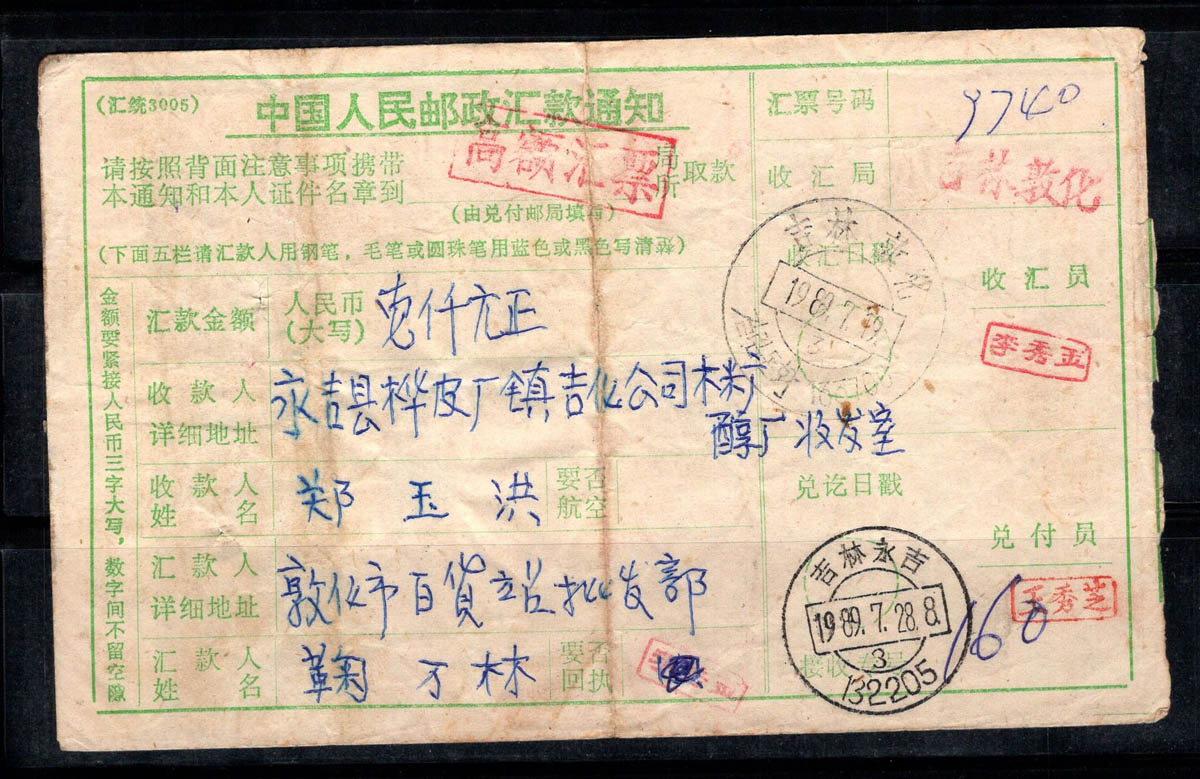 (汇统3005)
中国人民邮政汇款通知
高额汇票
请按照背面注意事项携带
本通知和本人证件名章到 局所取款
(由兑付邮局填写)
(下面五栏请汇款人用钢笔，毛笔或圆珠笔用蓝色或黑色写清霖)
金额要紧接人民币三字大写，数字间不留空隙
汇款金额
人民币
(大写)
壱仟元正
收款人
详细地址
永吉县桦皮厂镇吉化公司木粉厂
醇厂收发室
收款人
姓名
郑玉洪
要否
航空
汇款人
详细地址
敦化市百貨站批发部
汇款人
姓名
鞠才林
要否
回执
汇票号码
9740
收汇局
吉林敦化
收汇日戳
吉林敦化
收汇员
李秀玉
兑讫日戳
兑付员
王秀芝
吉林永吉
1989.7.28.8.
3
132205
160
接收